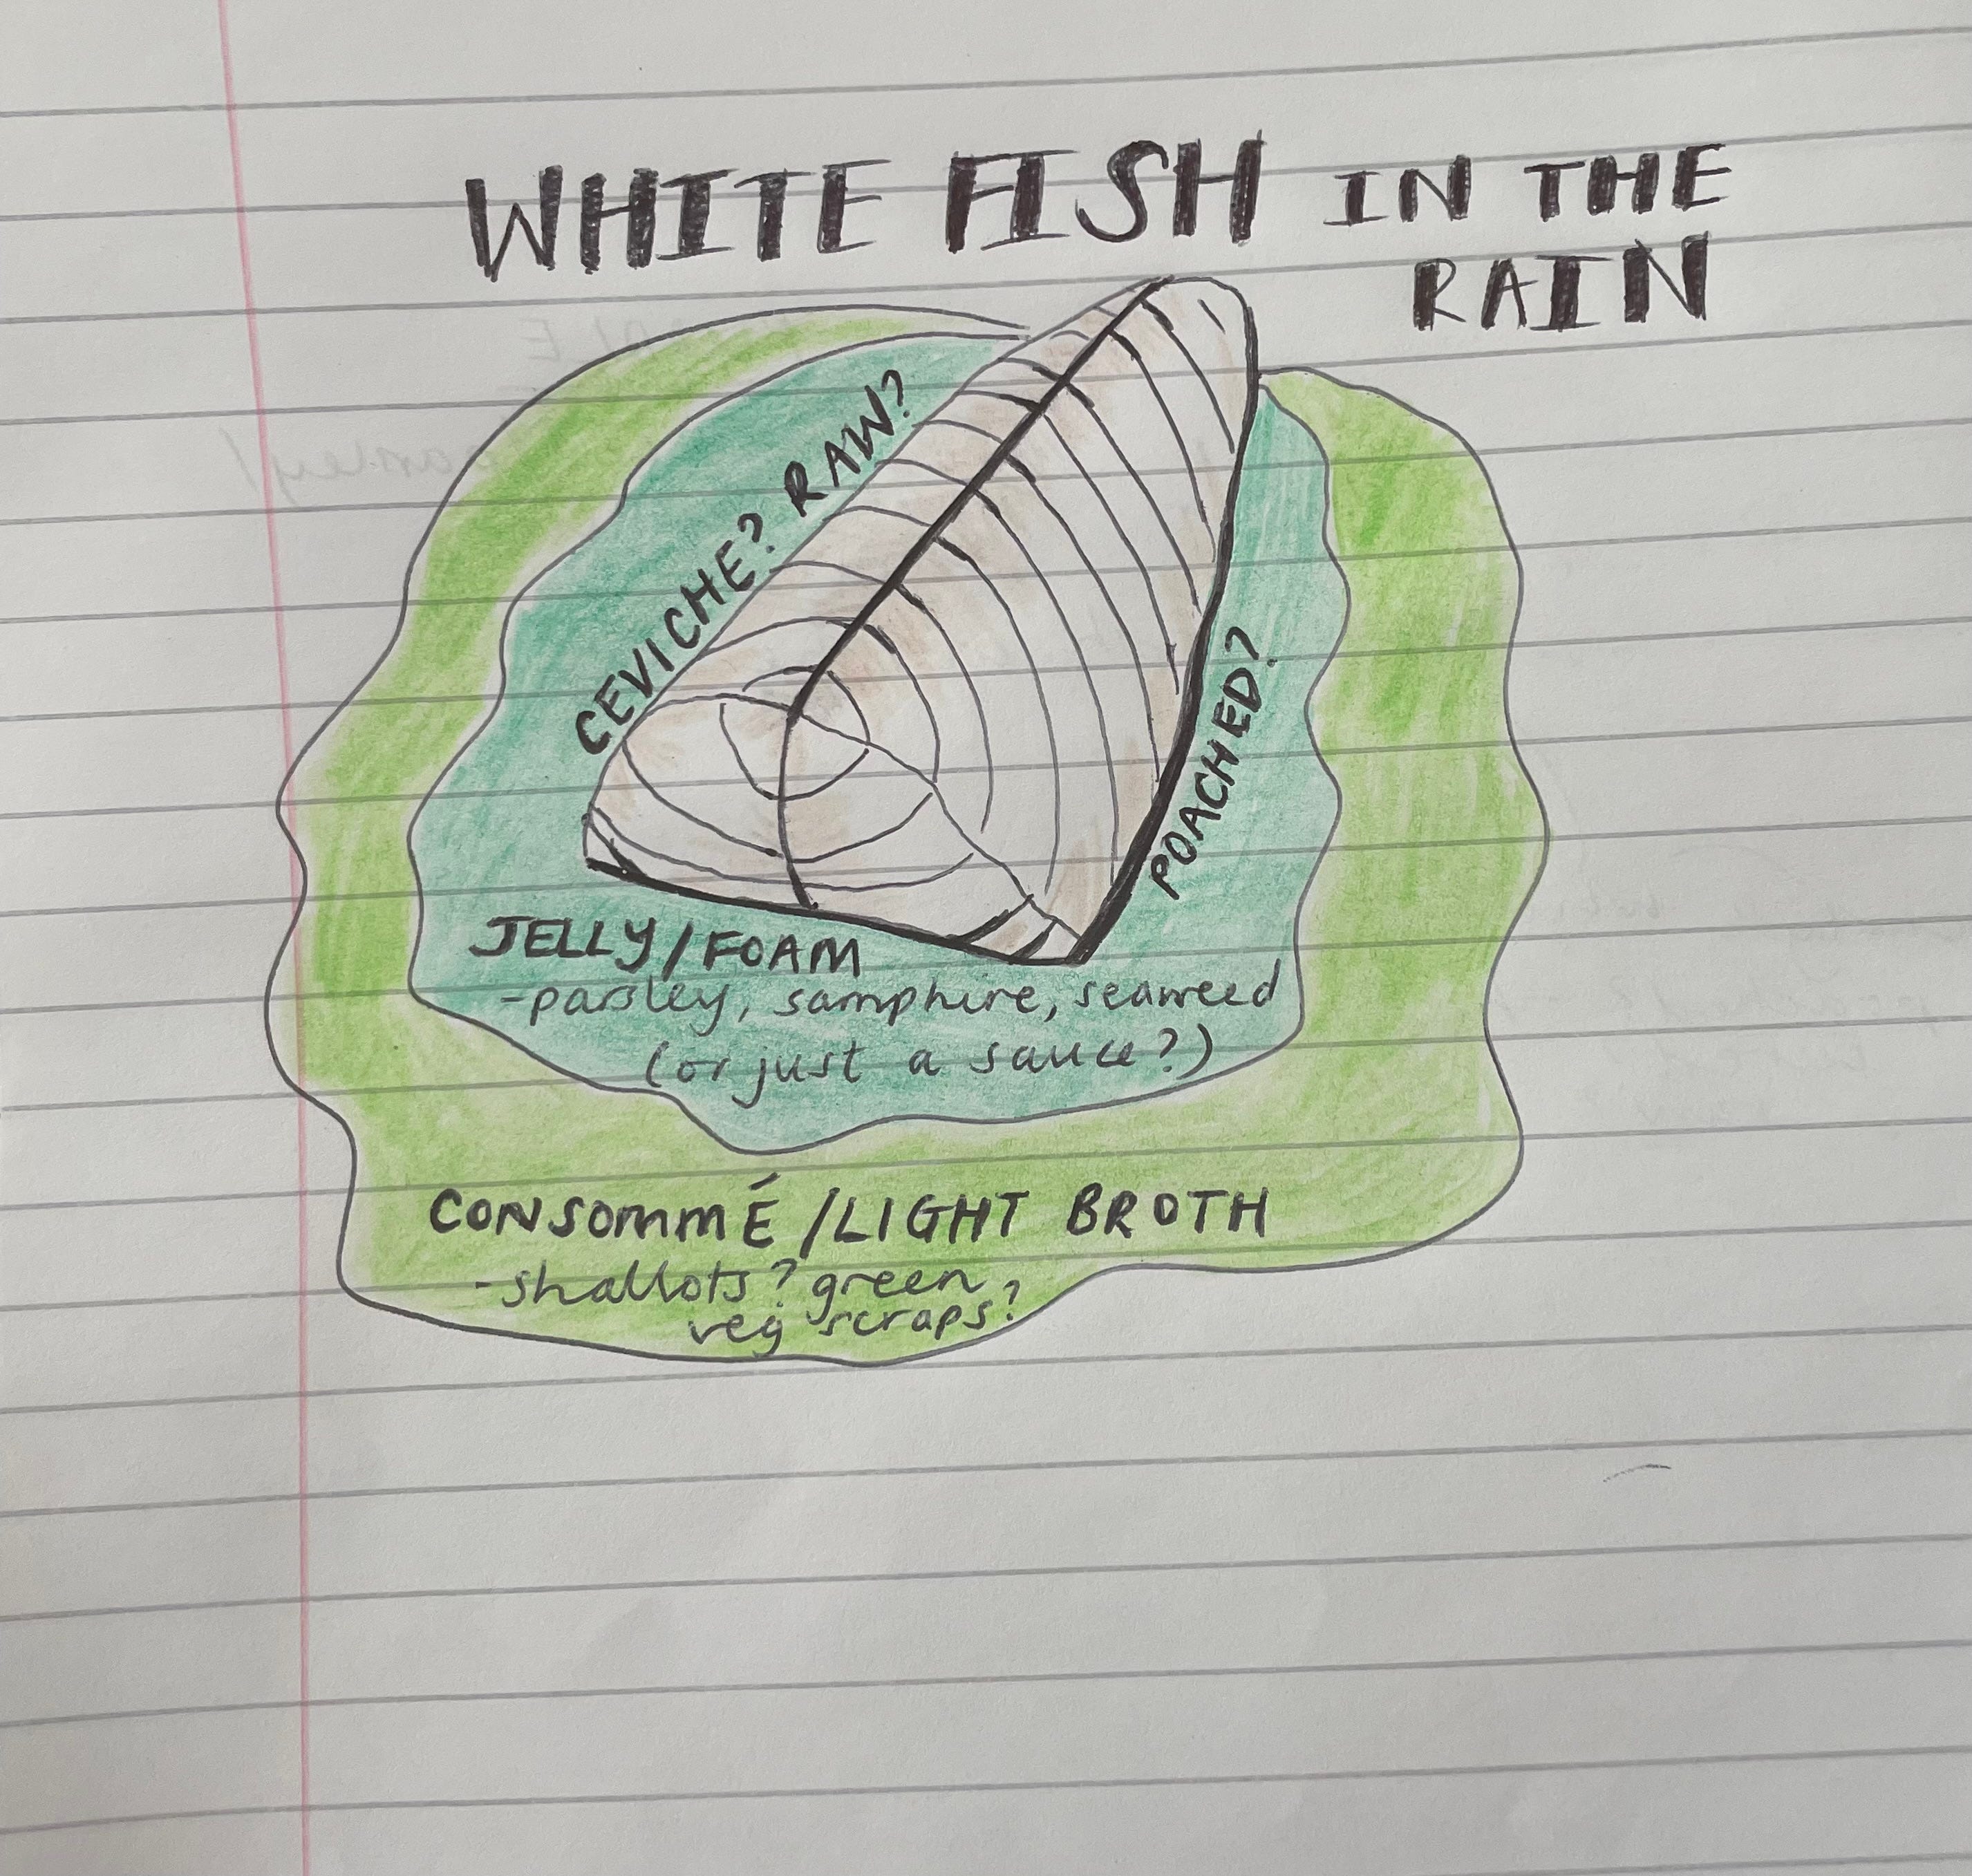 WHITE FISH IN THE
RAIN
CEVICHE? RAW?
POACHED?
JELLY/FOAM
-parsley, samphire, seaweed
(or just a sauce?)
CONSOMMÉ/LIGHT BROTH
-shallots? green
veg scraps?